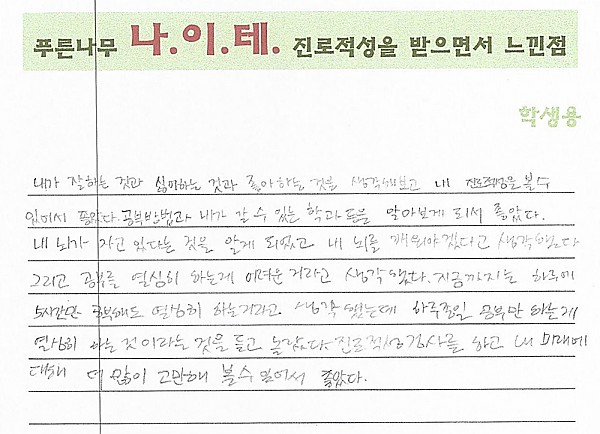 푸른나무 나.이.테. 진로적성을 받으면서 느낀점
학생용
내가 잘하는 것과 싫어하는 것과 좋아하는 것을 생각해보고 내 진로적성을 볼수
있어서 좋았다. 공부방법과 내가 갈 수 있는 학과 등을 알아보게 되서 좋았다.
내 뇌가 자고 있다는 것을 알게 되었고 내 뇌를 깨워야겠다고 생각했다
그리고 공부를 열심히 하는게 어려운 거라고 생각했다. 지금까지는 하루에
5시간만 공부해도 열심히 하는거라고 생각했는데 하루종일 공부만 하는게
열심히 하는 것이라는 것을 듣고 놀랐다 진로적성검사를 하고 내 미래에
대해 더 많이 고민해 볼수 있어서 좋았다.